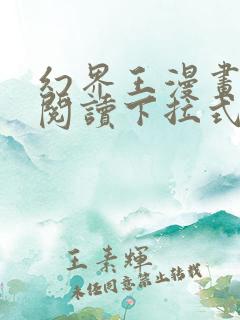 幻界王漫畫
閱讀下拉式
王素輝
未經同意禁止轉載